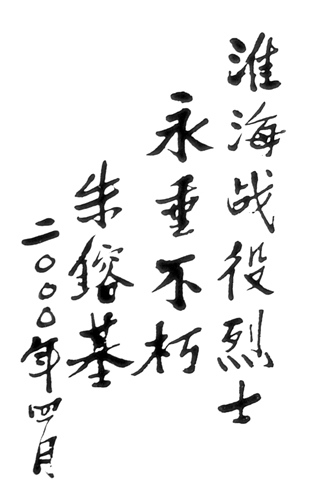 淮海战役烈士
永垂不朽
朱镕基
二〇〇〇年四月